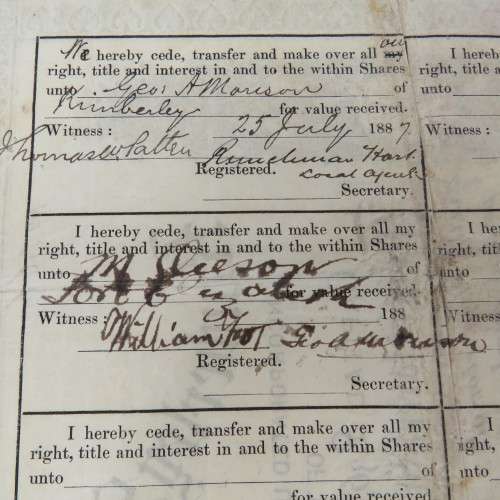 our
We hereby cede, transfer and make over all my
right, title and interest in and to the within Shares
unto Geo. A Morison of
Kimberley for value received.
Witness : 25 July 1887
Thomas W Patten
Registered. Local Agents
Secretary.
I hereby cede, transfer and make over all my
right, title and interest in and to the within Shares
unto M of
Fort Elizabeth for value received.
Witness : 188
William
Registered.
Secretary.
I hereby cede, transfer and make over all my
right, title and interest in and to the within Shares
unto of
for value received
I here
right, titl
unto
Witness :
I her
right, tit
unto
Witness
I he
right, t
unto